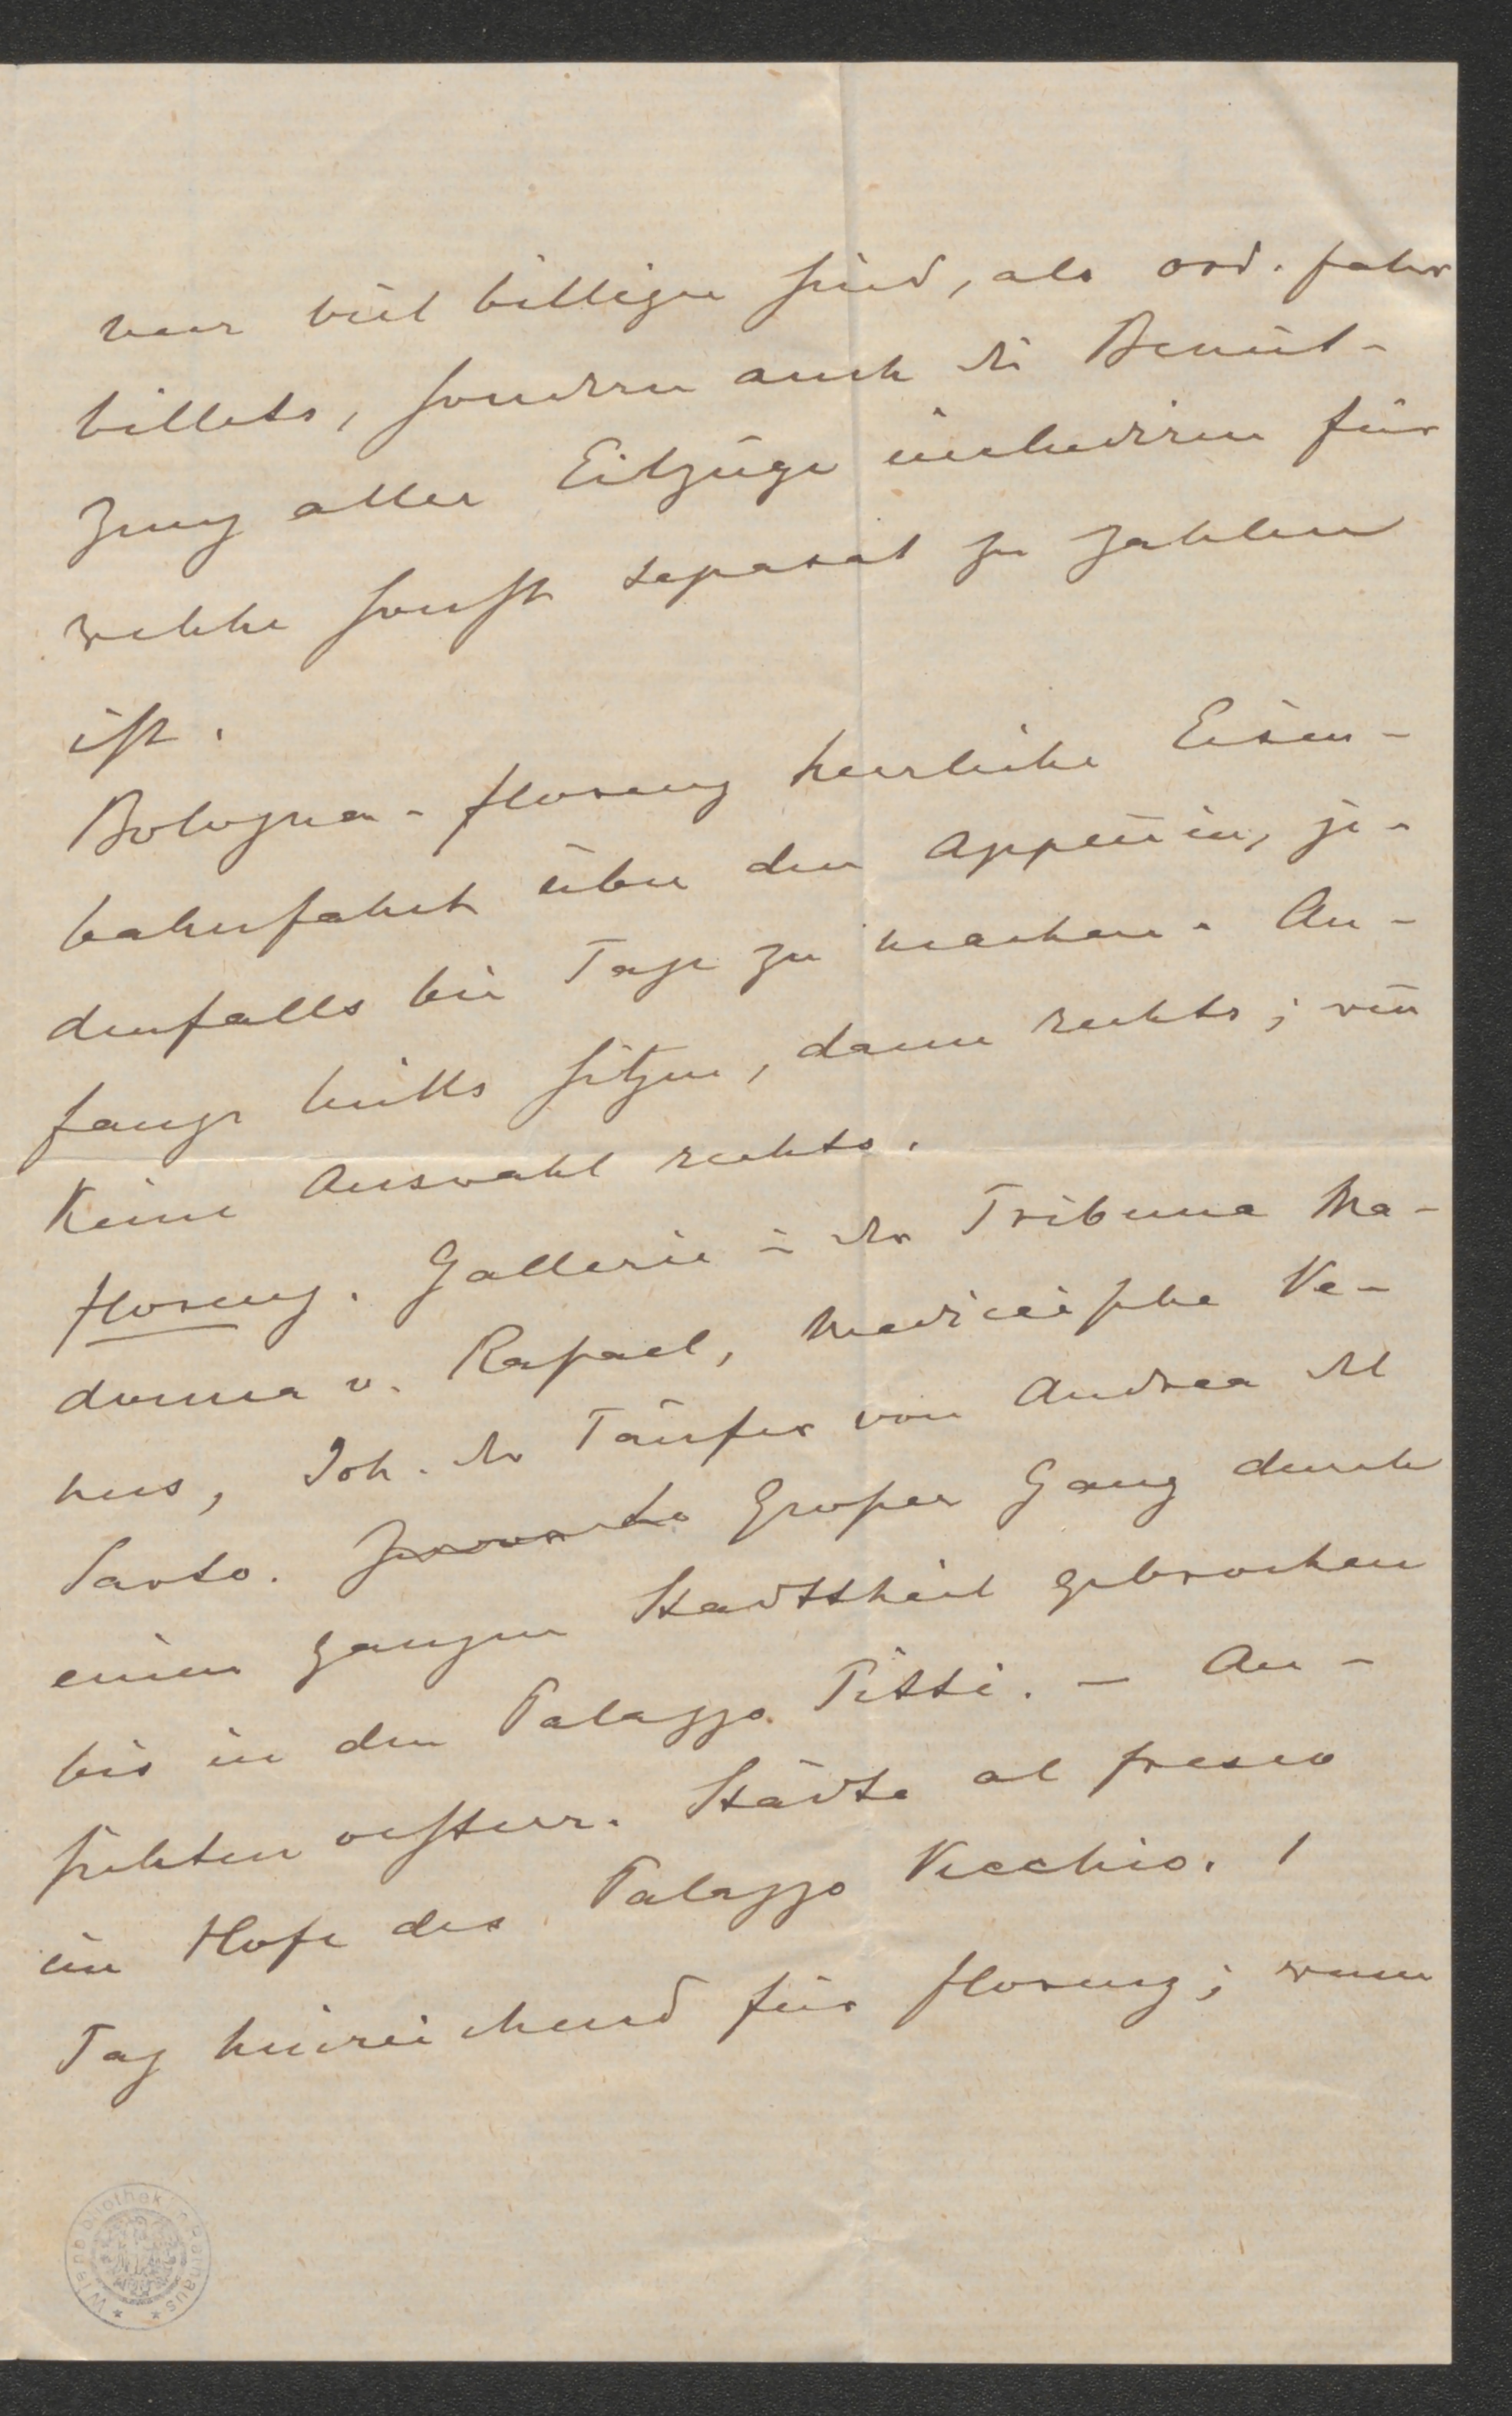 nur viel billiger sind, als ord. Fahr
billets, sondern auch die Benüt-
zung aller Eilzüge includiren für
welche sonst separat zu zahlen
ist.
Bologna - Florenz herrliche Eisen-
bahnfahrt über den Appenin, je-
denfalls bei Tage zu machen. An-
fangs links sitzen, dann rechts; weñ
keine Auswahl rechts.
Florenz. Gallerie in der Tribuna Ma-
donna v. Rafael, Mediceische Ve-
nus, Joh. der Täufer von Andrea del
Sarto. Großer Gang durch
einen ganzen Stadttheil gebrochen
bis in den Palazzo Pitti. – An-
sichten oesterr. Städte al fresco
im Hofe des Palazzo Vecchio. 1
Tag hinreichend für Florenz; wenn
Wienbibliothek im Rathaus